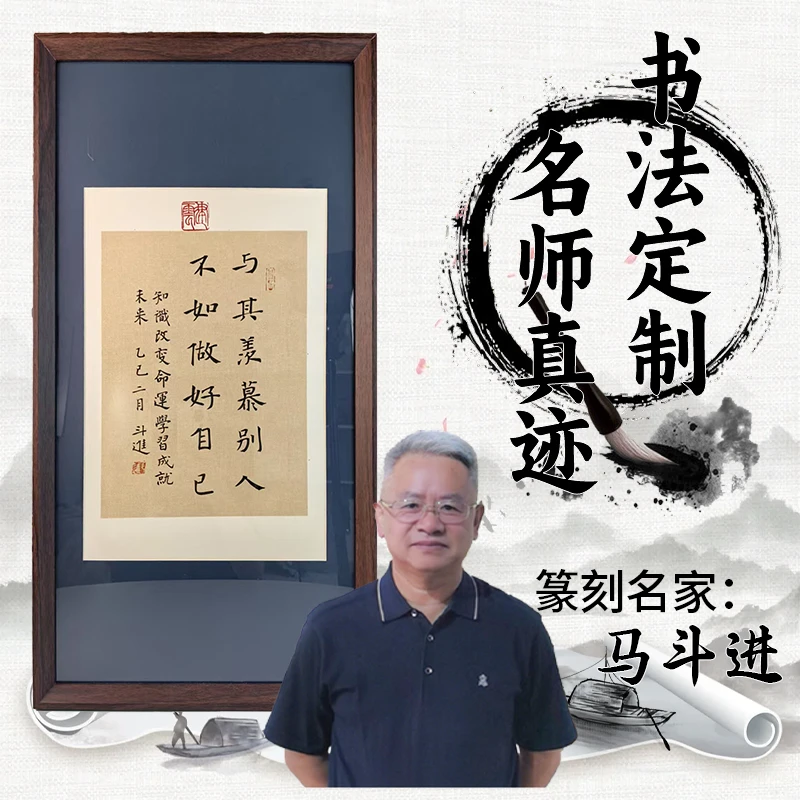 书法定制
名师真迹
篆刻名家：
马斗进
与其羡慕别人
不如做好自己
知識改变命運學習成就
未来 乙巳二月 斗進